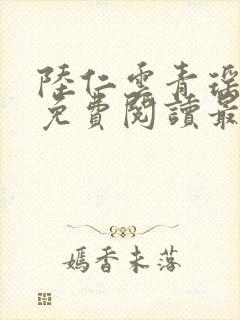 陸仁雲青瑤
免費閱讀最
嫣香未落